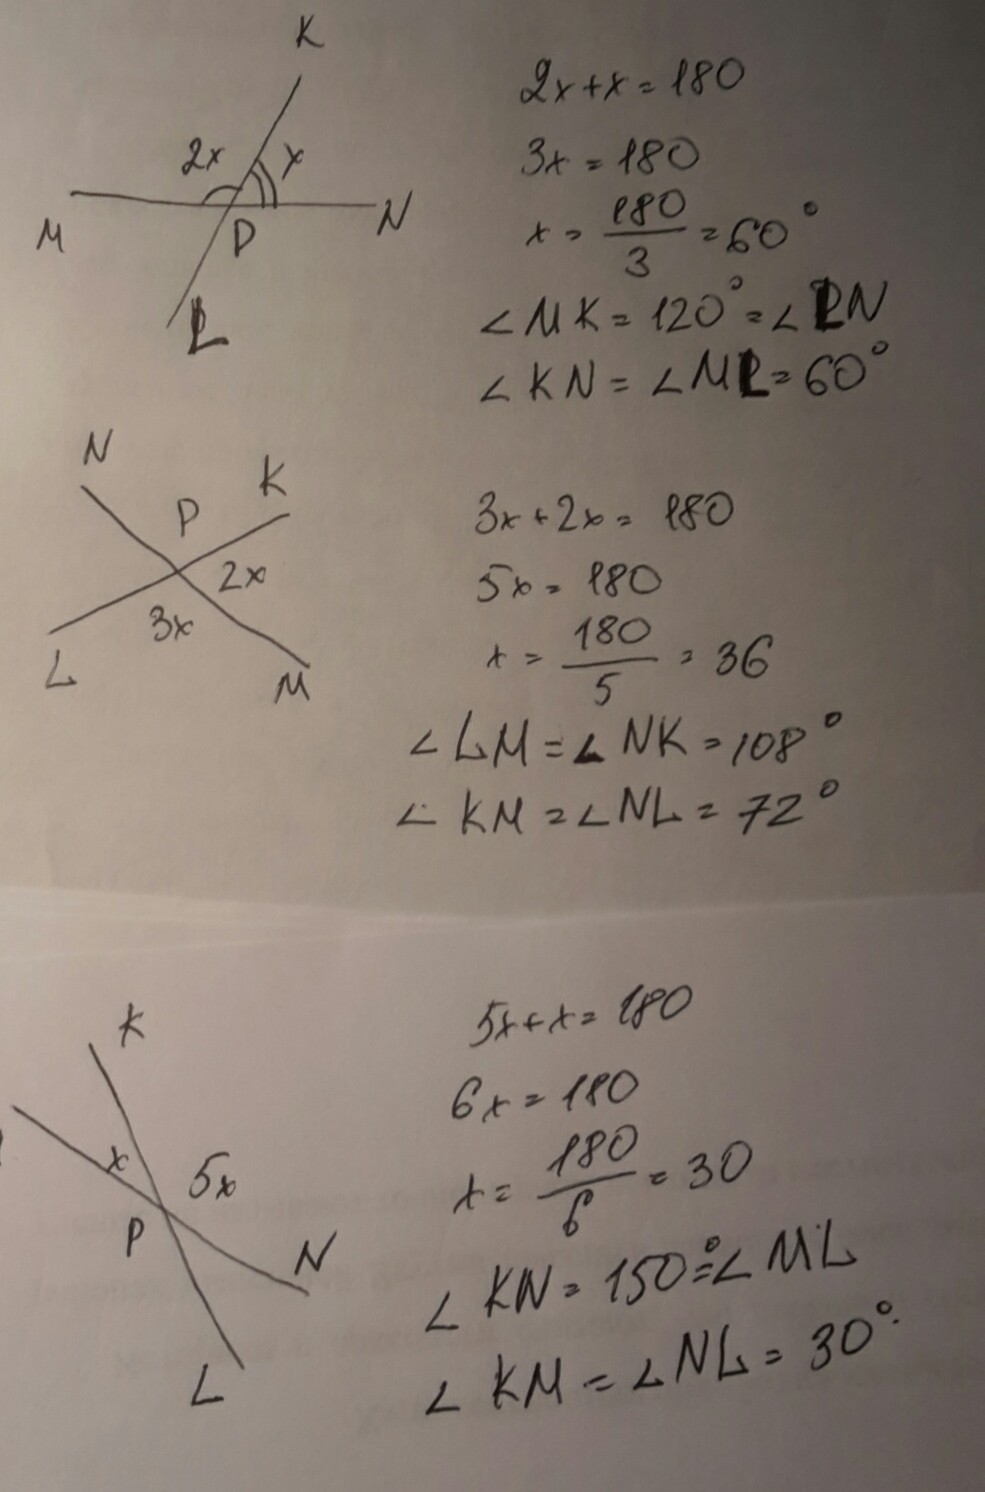 K
2x x
M P N
L
2x+x=180
3x=180
x=180/3=60°
∠MK=120°=∠LN
∠KN=∠ML=60°
N
P K
2x
3x
L M
3x+2x=180
5x=180
x=180/5=36
∠LM=∠NK=108°
∠KM=∠NL=72°
K
x 5x
P N
L
5x+x=180
6x=180
x=180/6=30
∠KN=150°=∠ML
∠KM=∠NL=30°.